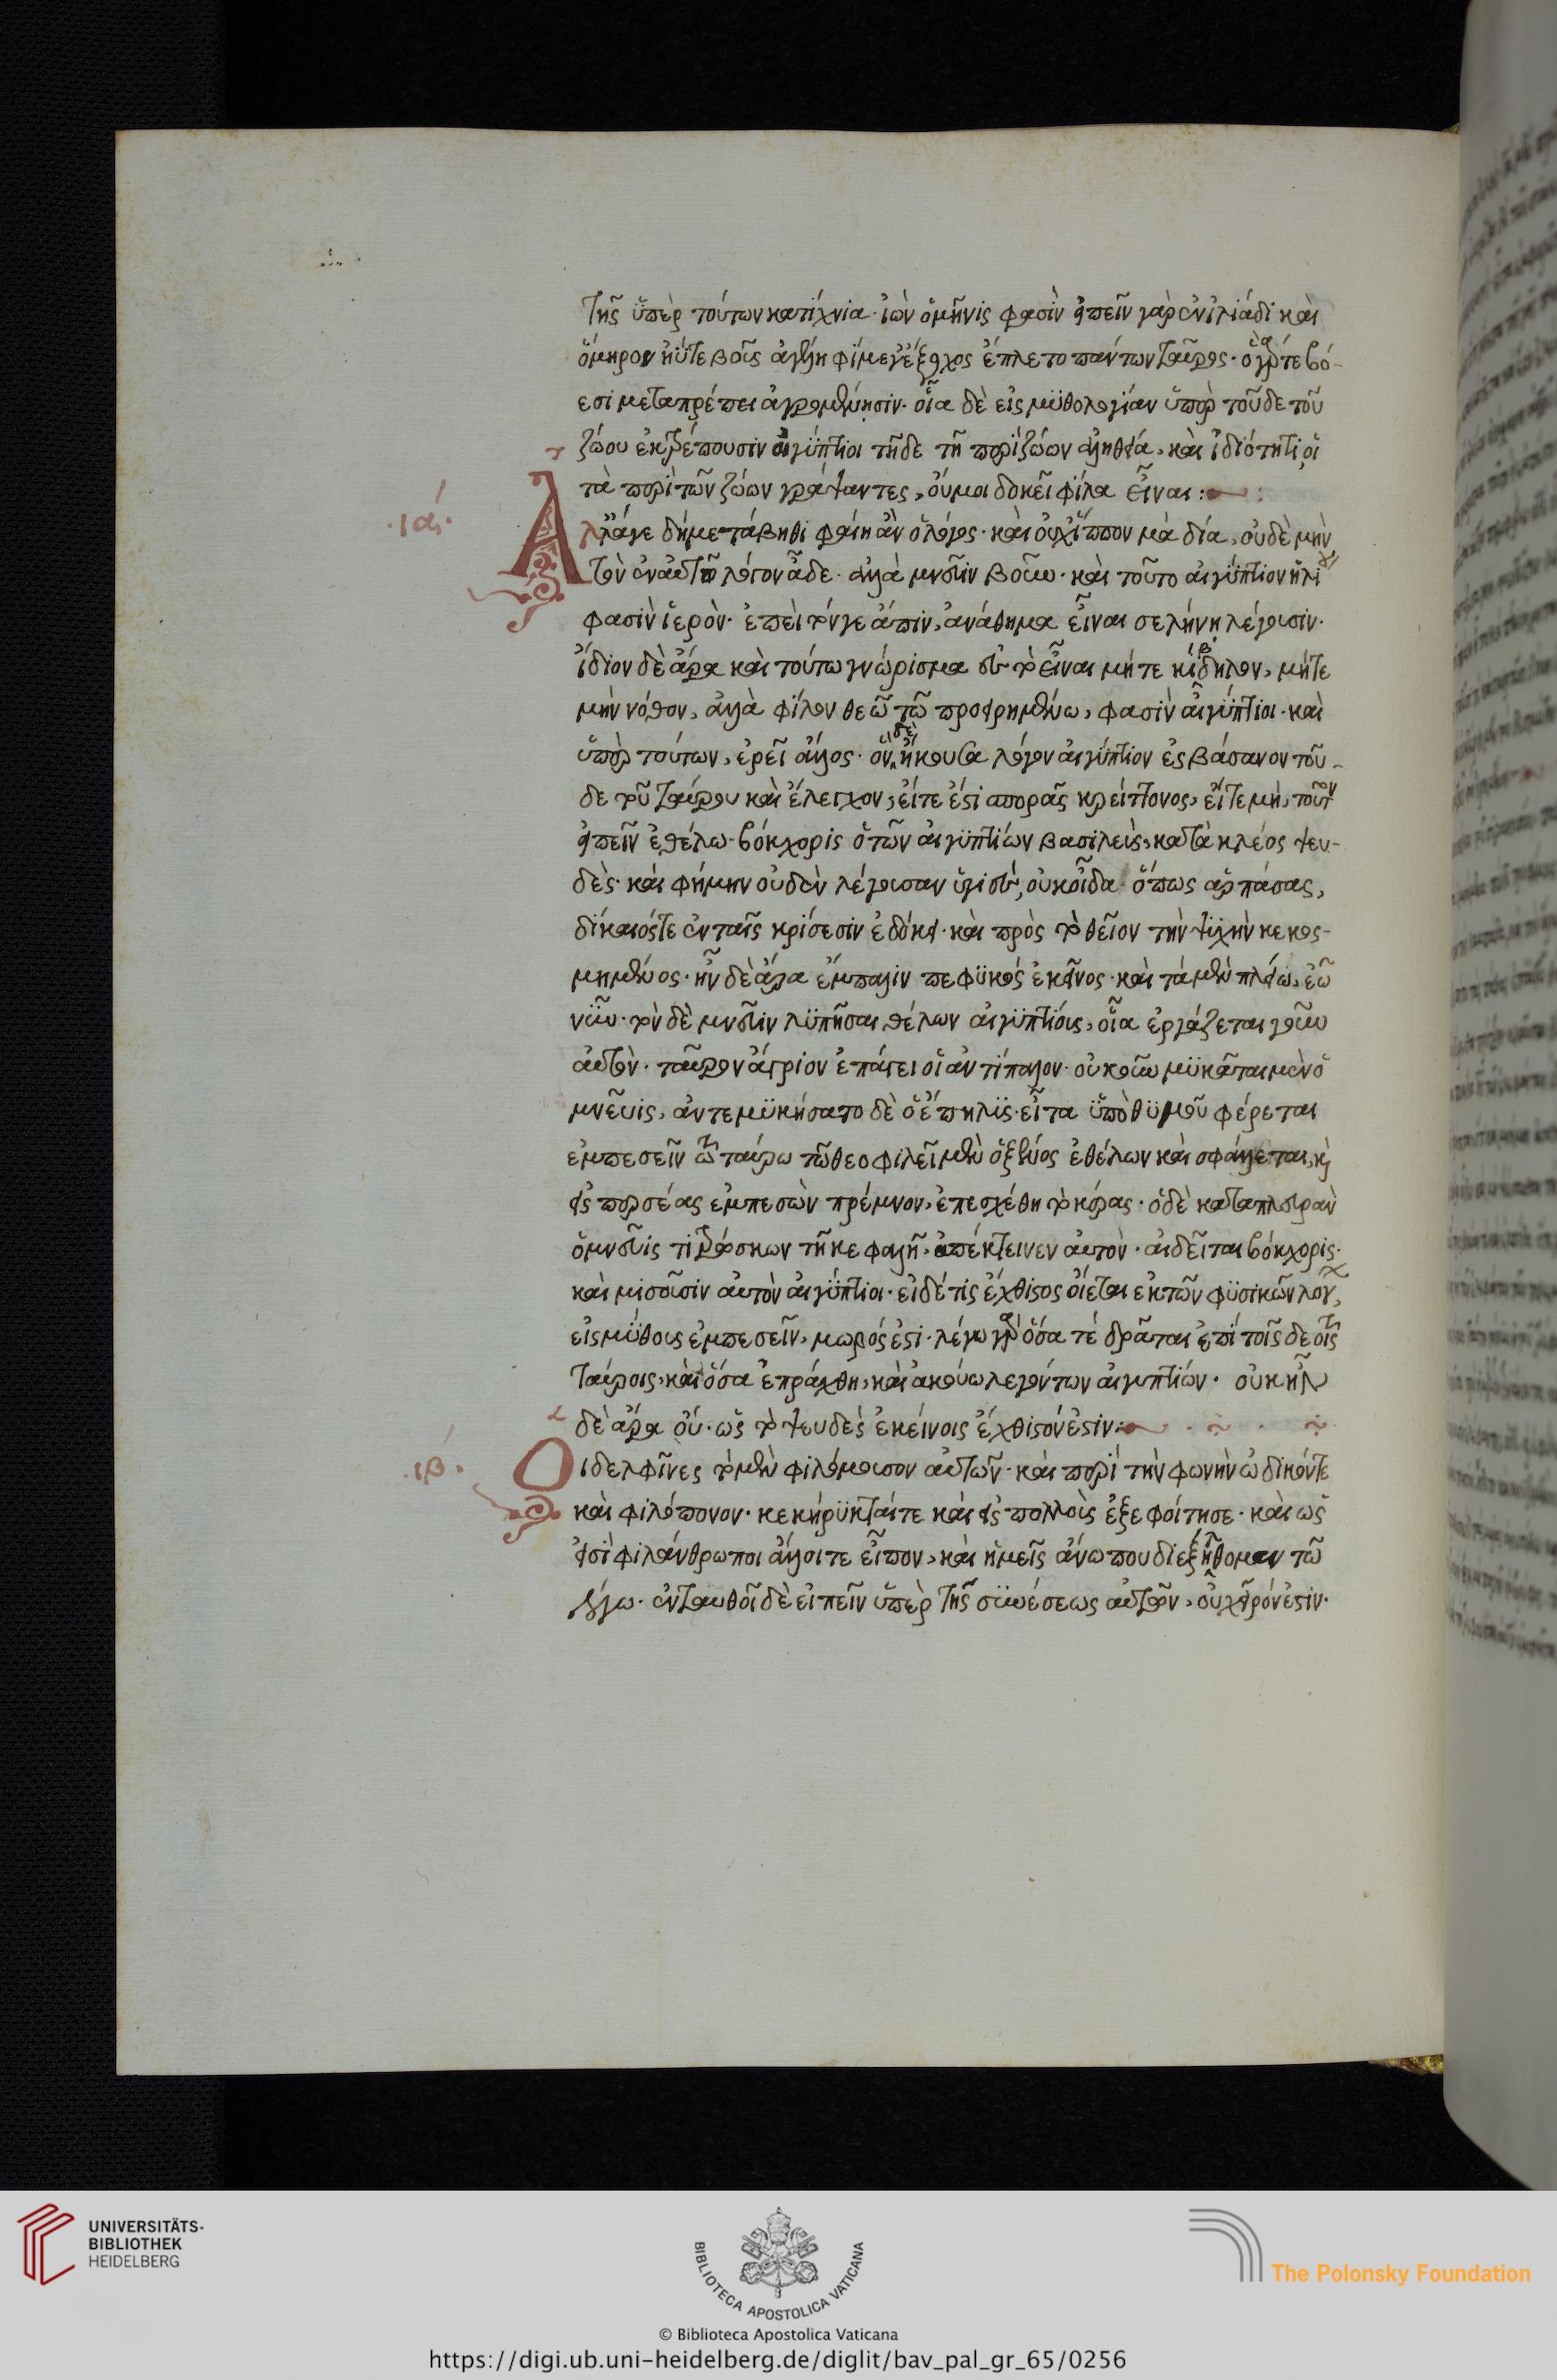 τῆς ὑπὲρ τούτων κατίχνια· ἰὼν ὁ μῆνις φασὶν εἰπεῖν γὰρ ἐν ἰλιάδι καὶ
ὅμηρον ἠΰτε βοῦς ἀγέλη φι μέγ' ἔξοχος ἔπλετο πάντων ταῦρος· ὁ γάρ τε βό-
εσι μεταπρέπει ἀγρομένησιν· οἷα δὲ εἰς μυθολογίαν ὑπὲρ τοῦδε τοῦ
ζώου ἐκτρέπουσιν αἰγύπτιοι τῆδε τῆ περὶ ζώων ἀληθεία, καὶ ἰδιότητι, οἱ
τὰ περὶ τῶν ζώων γράψαντες, οὔ μοι δοκεῖ φίλα εἶναι:
·ια·
Ἀλλ' ἄγε δή μετάβηθι φαίη ἂν ὁ λόγος· καὶ οὐχ ἵππον μὰ δία, οὐδὲ μὴν
τὸν ἐν αὐτῶ λόγον ἆδε· ἀλλὰ μνεῦιν βοῦν· καὶ τοῦτο αἰγύπτιον ἡλί
φασὶν ἱερὸν· ἐπεὶ τόνγε ἄπιν, ἀνάθημα εἶναι σελήνη λέγουσιν·
ἴδιον δὲ ἄρα καὶ τούτω γνώρισμα σὺν τὸ εἶναι μήτε κίβδηλον, μήτε
μὴν νόθον, ἀλλὰ φίλον θεῶ τῶ προειρημένω, φασὶν αἰγύπτιοι· καὶ
ὑπὲρ τούτων, ἐρεῖ ἄλλος· ὃν δὲ ἤκουσα λόγον αἰγύπτιον ἐς βάσανον τοῦ-
δε τοῦ ταύρου καὶ ἔλεγχον, εἴτε ἐστὶ σπορᾶς κρείττονος, εἴτε μή, τοῦτον
εἰπεῖν ἐθέλω· βόκχορις ὁ τῶν αἰγυπτίων βασιλεὺς, κατὰ κλέος ψευ-
δὲς· καὶ φήμην οὐδὲν λέγουσαν ὑγιὲς, οὐκ οἶδα ὅπως ἁρπάσας,
δίκαιός τε ἐν ταῖς κρίσεσιν ἐδόκει· καὶ πρὸς τὸ θεῖον τὴν ψυχὴν κεκος-
μημένος· ἦν δὲ ἄρα ἔμπαλιν πεφυκὼς ἐκεῖνος· καὶ τὰ μὲν πλείω, ἐῶ
νῦν· τὸν δὲ μνεῦιν λυπῆσαι θέλων αἰγυπτίοις, οἷα ἐργάζεται γοῦν
αὐτὸν· ταῦρον ἄγριον ἐπάγει οἱ ἀντίπαλον· οὐκοῦν μυκᾶται μὲν ὁ
μνεῦις, ἀντεμυκήσατο δὲ ὁ ἔπηλυς· εἶτα ὑπὸ θυμοῦ φέρεται
ἐμπεσεῖν τῶ ταύρω τῶ θεοφιλεῖ μὲν ὁ ξένος ἐθέλων καὶ σφάλλεται, καὶ
εἰς περσέας ἐμπεσὼν πρέμνον, ἐπεσχέθη τὸ κέρας· ὁ δὲ κατὰ πλευρὰν
ὁ μνεῦις τιτρώσκων τῆ κεφαλῆ, ἀπέκτεινεν αὐτὸν· αἰδεῖται βόκχορις·
καὶ μισοῦσιν αὐτὸν αἰγύπτιοι· εἰ δέ τις ἔχθιστος οἴεται ἐκ τῶν φυσικῶν λόγ
εἰς μύθους ἐμπεσεῖν, μωρός ἐστι· λέγω γὰρ ὅσα τέ δρᾶται ἐπὶ τοῖς δε τοῖς
ταύροις, καὶ ὅσα ἐπράχθη, καὶ ἀκούω λεγόντων αἰγυπτίων· οὐκ ἦν
δὲ ἄρα οὐ· ὡς τὸ ψευδές ἐκείνοις ἔχθιστόν ἐστιν:
·ιβ·
Οἱ δελφῖνες τὸ μὲν φιλόμουσον αὐτῶν· καὶ περὶ τὴν φωνὴν ὠδικόν τε
καὶ φιλόπονον· κεκήρυκταί τε καὶ εἰς πολλοὺς ἐξεφοίτησε· καὶ ὡς
εἰσὶ φιλάνθρωποι ἄλλοι τε εἶπον, καὶ ἡμεῖς ἄνω που διεξήλθομεν τῶ
λόγω· ἐνταυθοῖ δὲ εἰπεῖν ὑπὲρ τῆς συνέσεως αὐτῶν, οὐ χεῖρόν ἐστιν·
UNIVERSITÄTS-
BIBLIOTHEK
HEIDELBERG
BIBLIOTECA APOSTOLICA VATICANA
The Polonsky Foundation
© Biblioteca Apostolica Vaticana
https://digi.ub.uni-heidelberg.de/diglit/bav_pal_gr_65/0256